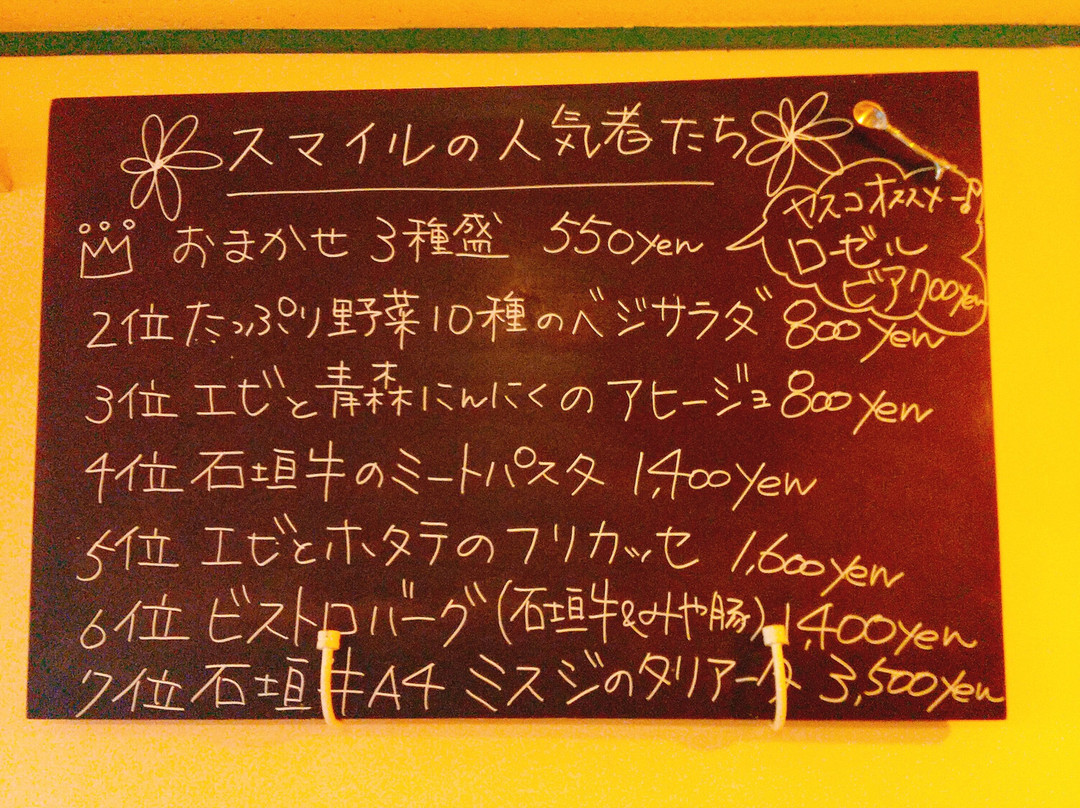 スマイルの人気者たち
おまかせ 3種盛 550yen
ヤスコオススメー♪
ローゼル
ビア700yen
2位 たっぷり野菜10種のベジサラダ 800yen
3位 エビと青森にんにくのアヒージョ 800yen
4位 石垣牛のミートパスタ 1,400yen
5位 エビとホタテのフリカッセ 1,600yen
6位 ビストロバーグ(石垣牛&みや豚) 1,400yen
7位 石垣牛A4 ミスジのタリアータ 3,500yen